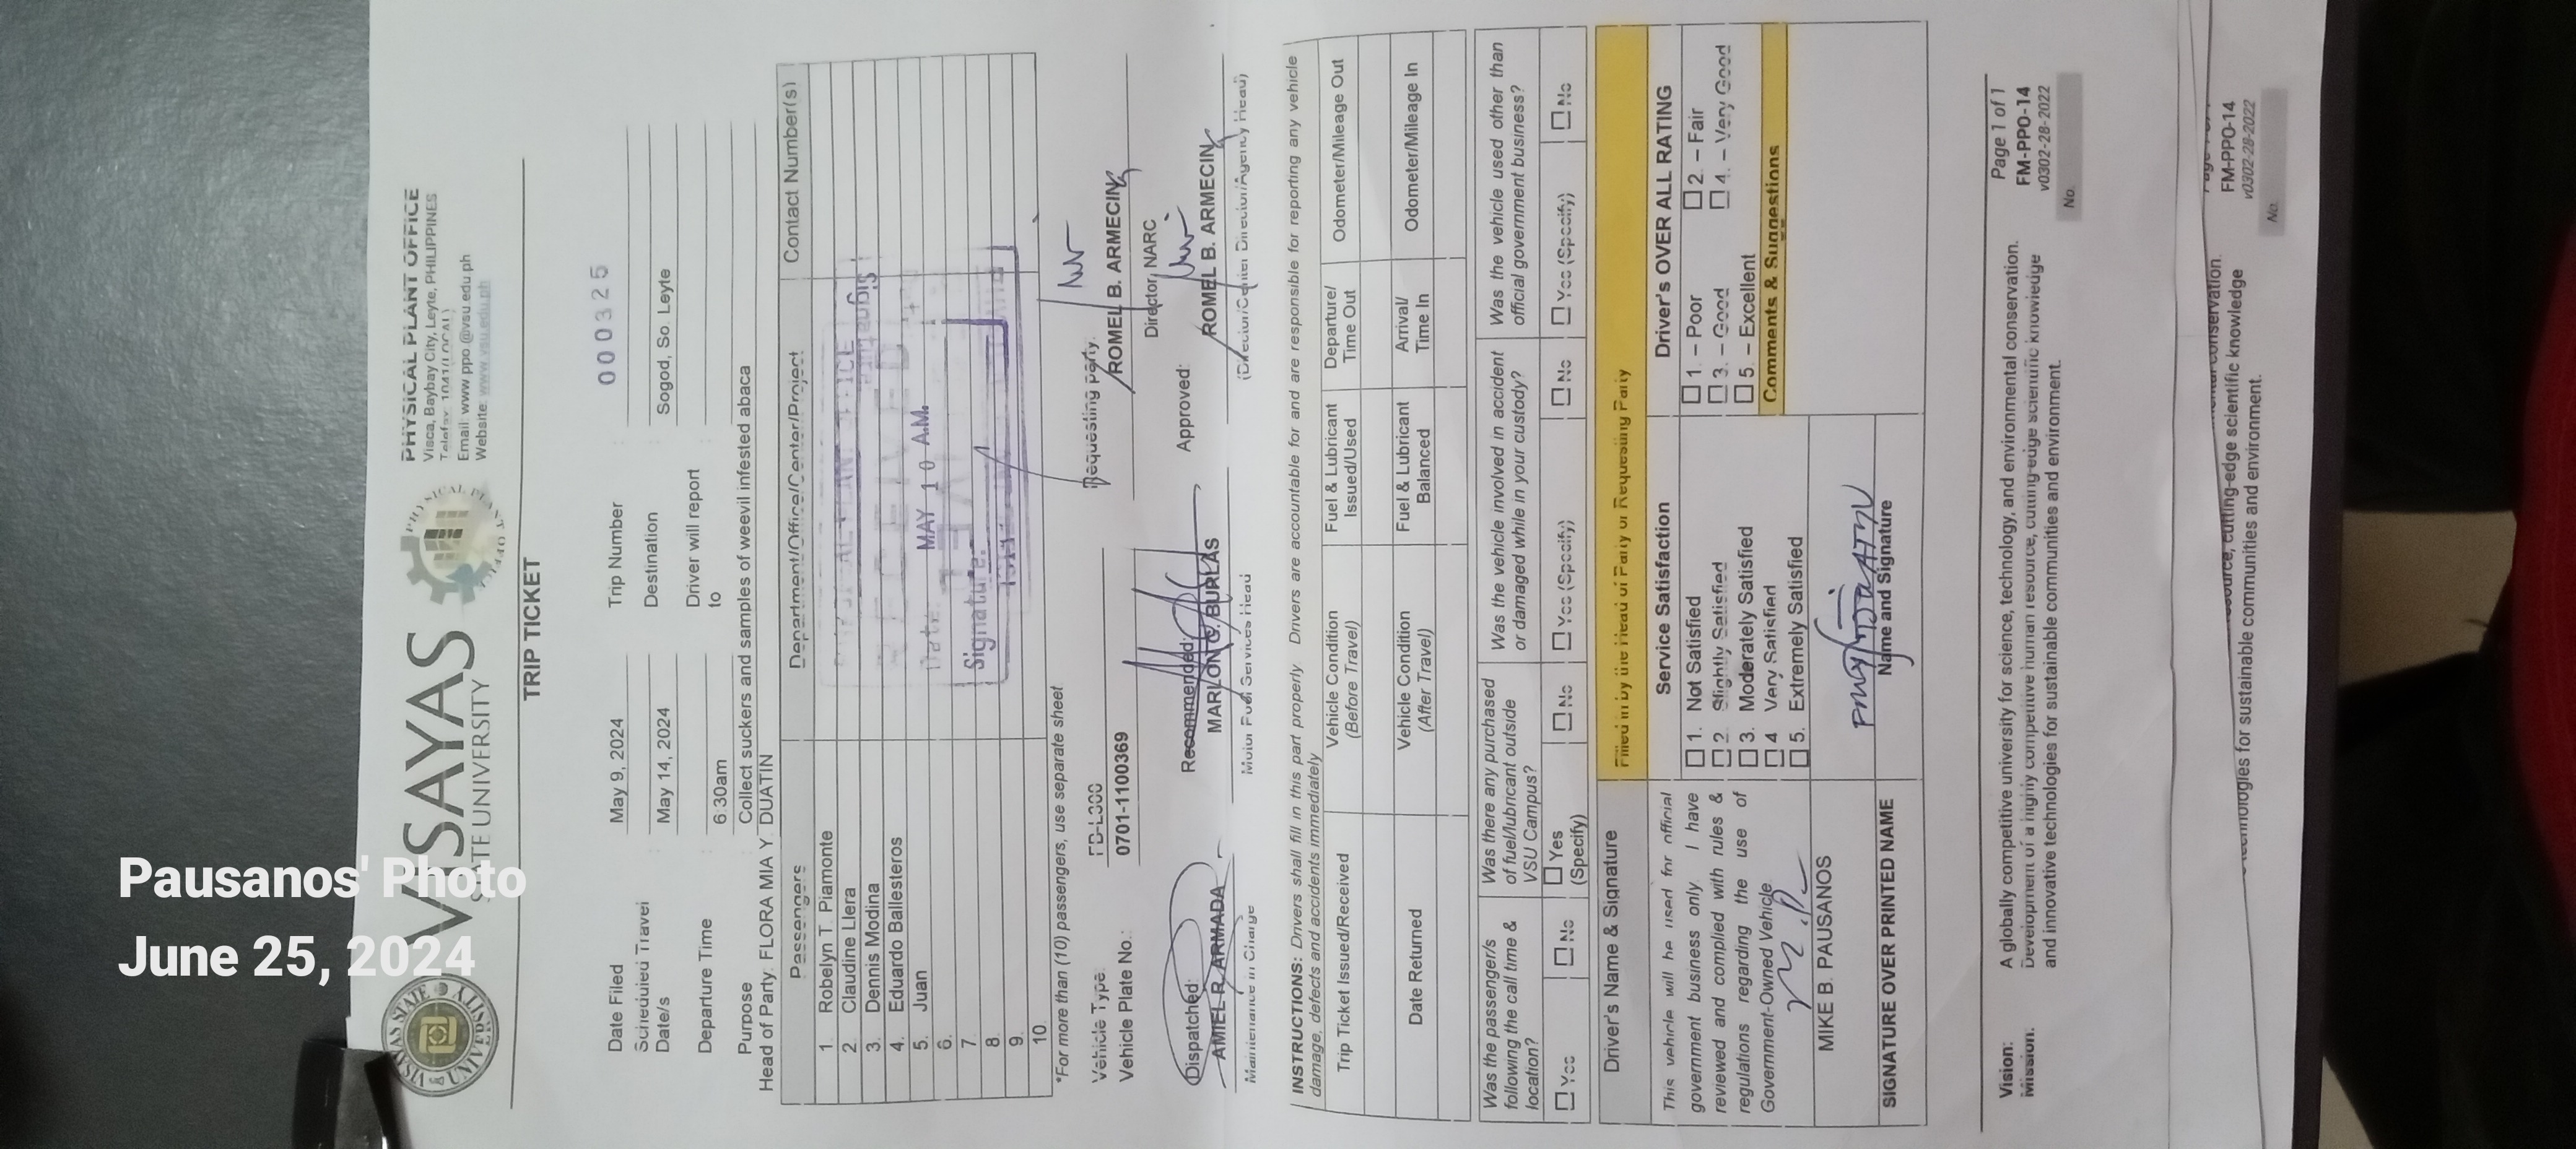 Pausanos' Photo
June 25, 2024
VISAYAS
STATE UNIVERSITY
PHYSICAL PLANT OFFICE
Visca, Baybay City, Leyte, PHILIPPINES
Telefax: 1041 (LOCAL)
Email: www.ppo@vsu.edu.ph
Website: www.vsu.edu.ph
TRIP TICKET
Date Filed : May 9, 2024 Trip Number : 000325
Scheduled Travel Date/s : May 14, 2024 Destination : Sogod, So. Leyte
Departure Time : 6:30am Driver will report to :
Purpose : Collect suckers and samples of weevil infested abaca
Head of Party: FLORA MIA Y. DUATIN
Passengers Department/Office/Center/Project Contact Number(s)
1. Robelyn T. Piamonte
2. Claudine Llera
3. Dennis Modina
4. Eduardo Ballesteros
5. Juan
6.
7.
8.
9.
10.
PHYSICAL PLANT OFFICE
MAY 10 A.M.
Signature:
*For more than (10) passengers, use separate sheet
Vehicle Type:
Vehicle Plate No.: 0701-1100369
Requesting Party:
ROMEL B. ARMECIN
Director, NARC
Dispatched: Recommended: Approved:
AMIEL R. ARMADA MARLON G. BURLAS ROMEL B. ARMECIN
Maintenance in Charge Motor Pool Services Head (Director/Center Director/Agency Head)
INSTRUCTIONS: Drivers shall fill in this part properly. Drivers are accountable for and are responsible for reporting any vehicle
damage, defects and accidents immediately
Trip Ticket Issued/Received Vehicle Condition (Before Travel) Fuel & Lubricant Issued/Used Departure/ Time Out Odometer/Mileage Out
Date Returned Vehicle Condition (After Travel) Fuel & Lubricant Balanced Arrival/ Time In Odometer/Mileage In
Was the passenger/s following the call time & location?
Was there any purchased of fuel/lubricant outside VSU Campus?
Was the vehicle involved in accident or damaged while in your custody?
Was the vehicle used other than official government business?
☐ Yes ☐ No ☐ Yes (Specify) ☐ No ☐ Yes (Specify) ☐ No ☐ Yes (Specify) ☐ No
Driver's Name & Signature
Filled in by the Head of Party or Requesting Party
This vehicle will be used for official
government business only. I have
reviewed and complied with rules &
regulations regarding the use of
Government-Owned Vehicle.
MIKE B. PAUSANOS
SIGNATURE OVER PRINTED NAME
Service Satisfaction
☐ 1. Not Satisfied
☐ 2. Slightly Satisfied
☐ 3. Moderately Satisfied
☐ 4 Very Satisfied
☐ 5. Extremely Satisfied
Name and Signature
Driver's OVER ALL RATING
☐ 1. – Poor ☐ 2. – Fair
☐ 3. – Good ☐ 4. – Very Good
☐ 5. – Excellent
Comments & Suggestions
Vision: A globally competitive university for science, technology, and environmental conservation.
Mission: Development of a highly competitive human resource, cutting-edge scientific knowledge
and innovative technologies for sustainable communities and environment.
Page 1 of 1
FM-PPO-14
v0302-28-2022
No.
conservation.
resource, cutting-edge scientific knowledge
technologies for sustainable communities and environment.
FM-PPO-14
v0302-28-2022
No.